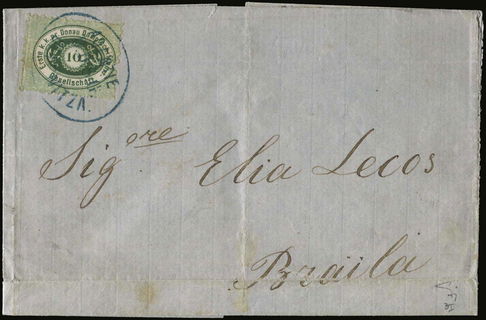 Erste k. k. pr. Donau Dampfschiffahrt
10
Gesellschaft
Sig.re Elia Lecos
Braila